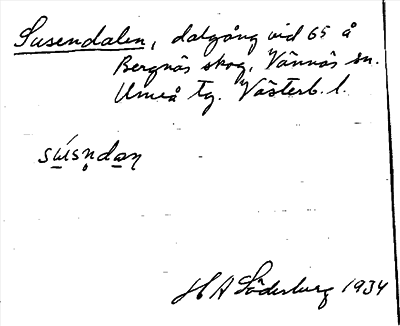 Susendalen, dalgång vid 65 å
Bergnäs skog, Vännäs sn.
Umeå tg. Västerb. l.
súsn̥dan
H A Söderberg 1934